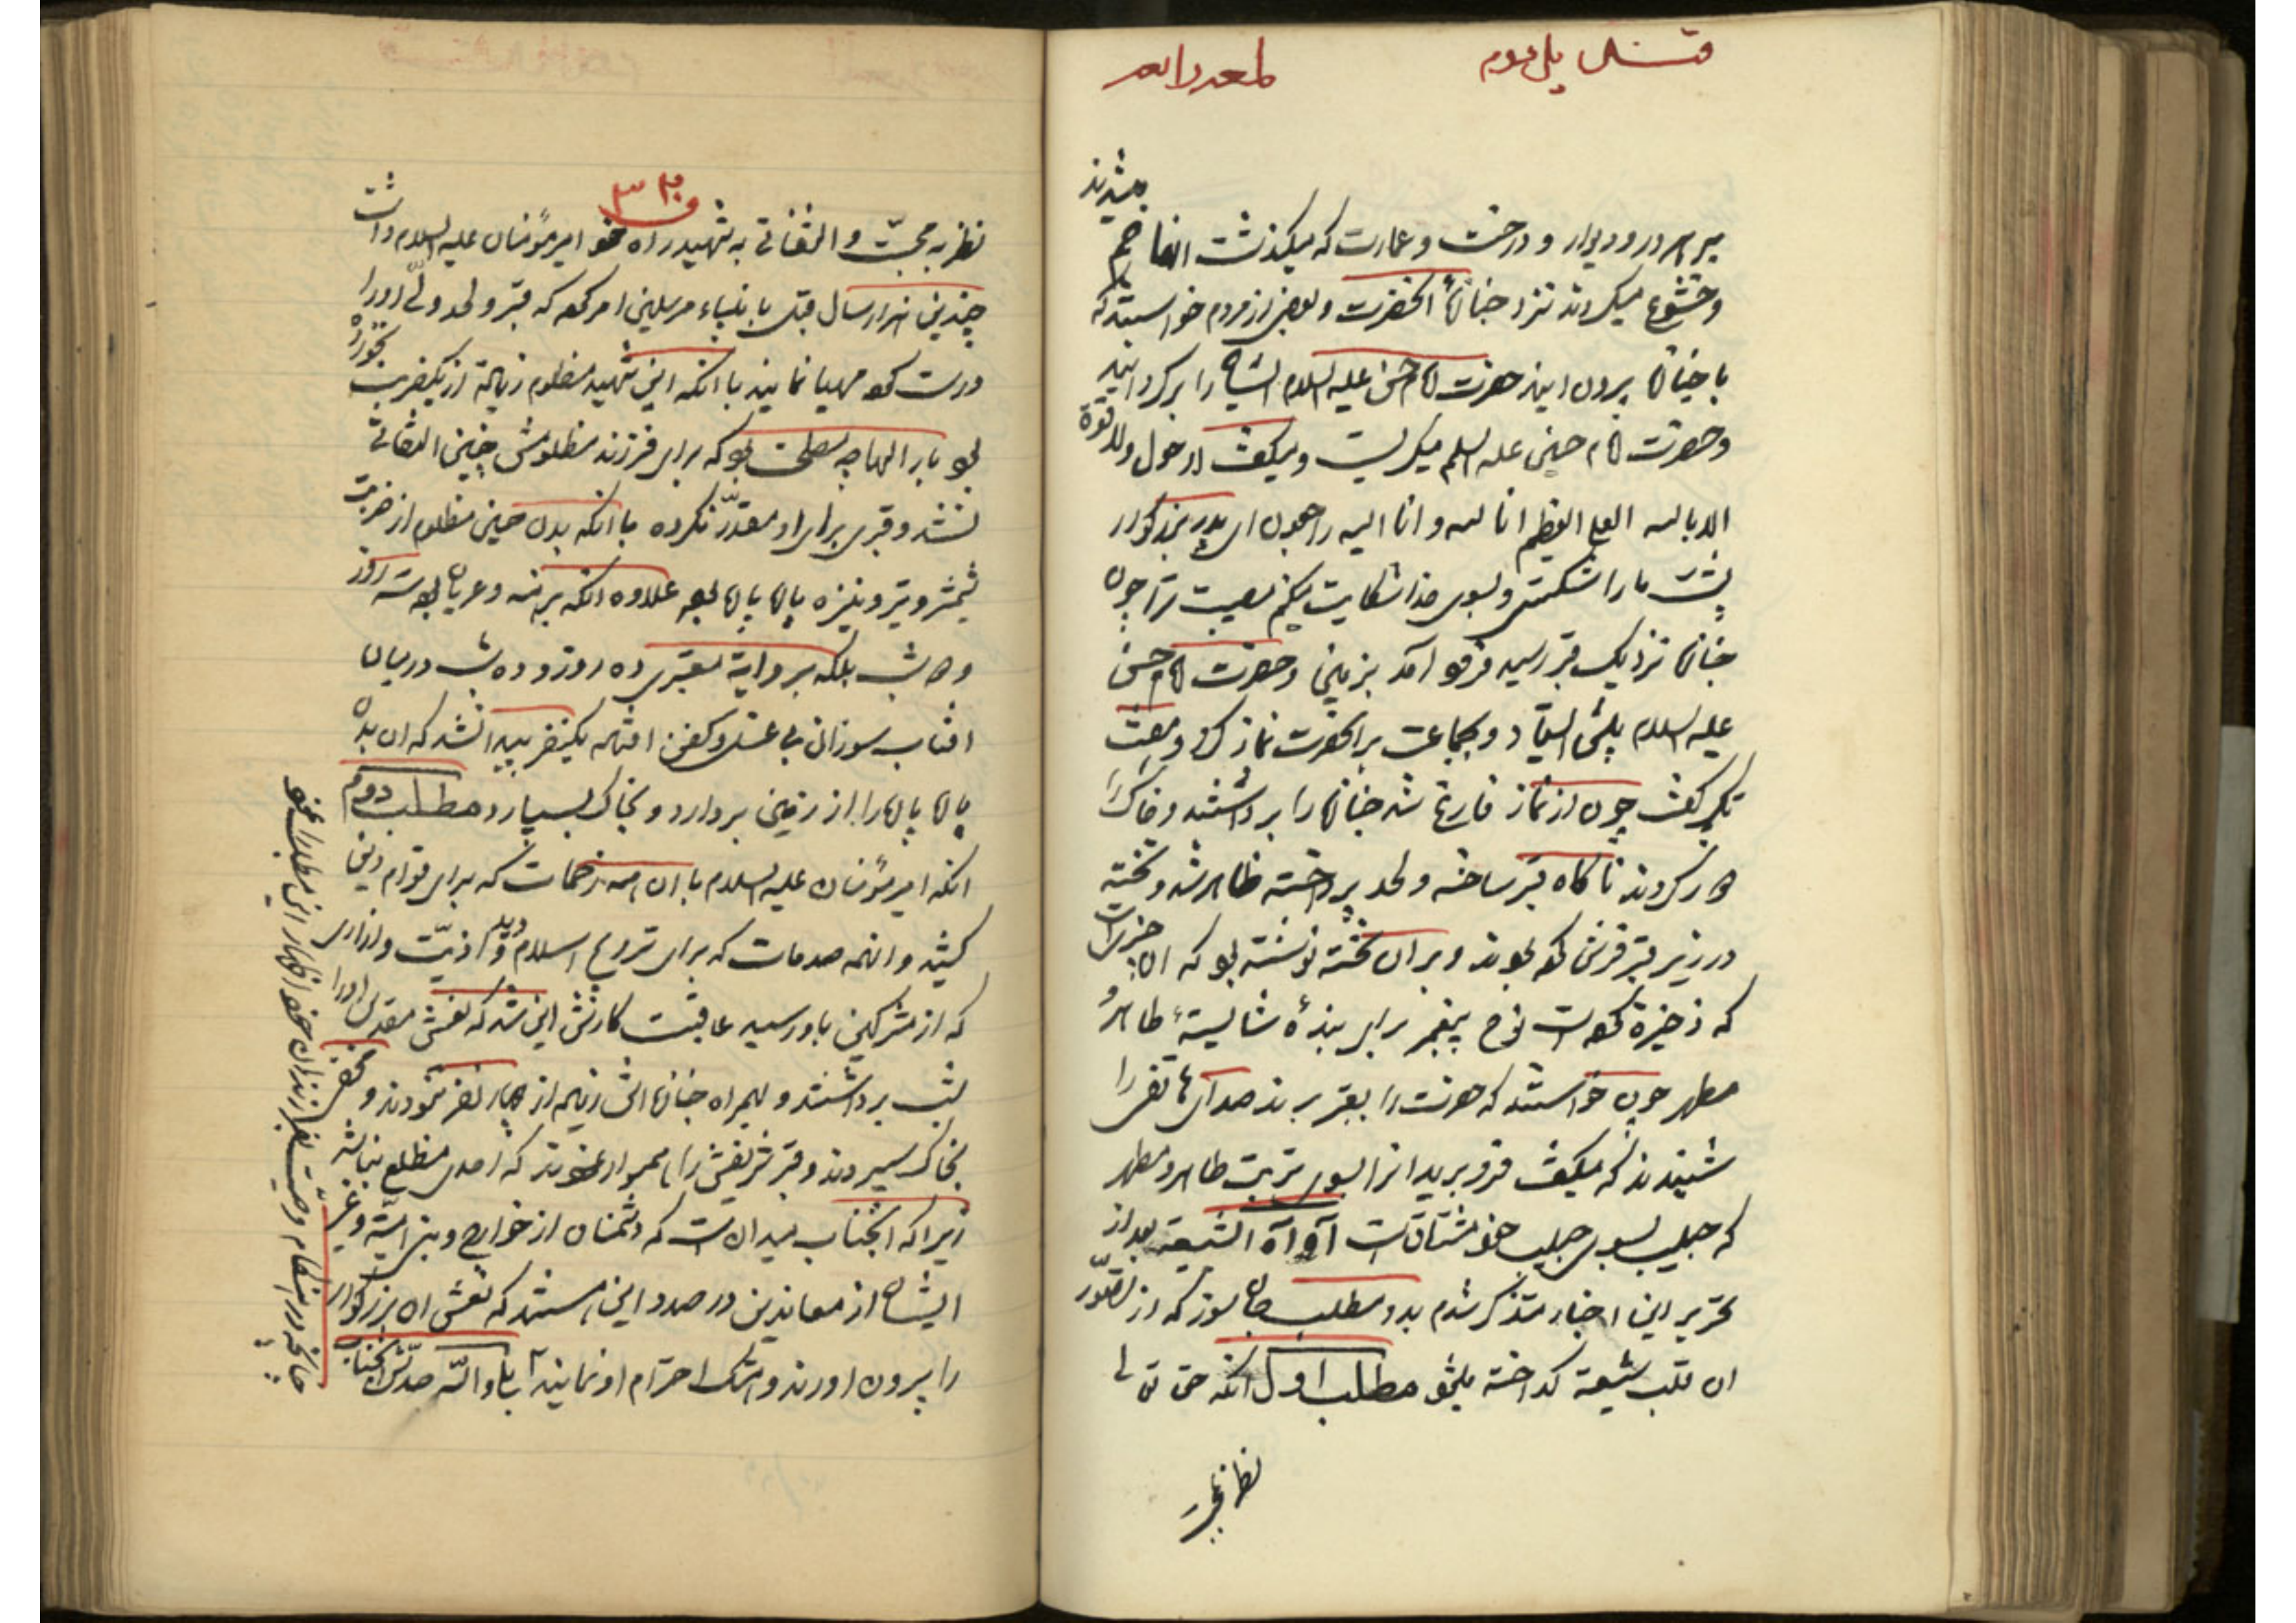 لمعه رابعه
میشدند
بر هر در و دیوار و درخت و عمارت که میگذشت انها خم
و خشوع میکردند نزد جنازهٔ انحضرت و بعضی از مردم خواستند که
با جنازه بیرون ایند حضرت امام حسن علیه السلام ایشان را برگردانید
و حضرت امام حسین علیه السلم میگریست و میگفت لا حول ولا قوة
الا بالله العلی العظیم انا لله و انا الیه راجعون ای پدر بزرگوار
پشت ما را شکستی و بسوی خدا شکایت میکنم مصیبت ترا چون
جنازه نزدیک قبر رسید فرود آمد بزمین و حضرت امام حسن
علیه السلام پیش ایستاد و بجماعت بر انحضرت نماز کرد و هفت
تکبیر گفت چون از نماز فارغ شد جنازه را برداشتند و خاک را
دور کردند ناگاه قبر ساخته و لحد پرداخته ظاهر شد و تخته
در زیر قبر فرش کرده بودند و بر ان تخته نوشته بود که این چیزیست
که ذخیره کرده است نوح پیغمبر برای بندهٔ شایستهٔ طاهر و
مطهر چون خواستند که حضرت را بقبر برند صدای هاتفی را
شنیدند که میگفت فرو برید او را بسوی تربت طاهر و مطهر
که حبیب بسوی حبیب خود مشتاقست آه آه الشیعه بعد از
تحریر این اخبار متذکر شدم بدو مطلب جان سوز که از تصور
ان قلب شیعه گداخته میشود مطلب اول انکه حق تعالی
نظر بمحبت
۳۳۰
نظر به محبّت و التفاتی به شهید راه خود امیر مؤمنان علیه السلام داشت
چندین هزار سال قبل بانبیاء مرسلین امر کرد که قبر و لحد ولیّ او را
درست کرده مهیا نمایند با انکه این شهید مظلوم زیاده از یکضربت نخورده
بود بار الها چه مصلحت بود که برای فرزند مظلومش چنین التفاتی
نشد و قبری برای او مقدّر نکرده با انکه بدن حسین مظلوم از ضربت
شمشیر و تیر و نیزه پاره پاره بود علاوه انکه برهنه و عریان بود سه روز
و سه شب بلکه بروایة معتبری ده روز و ده شب در میان
افتاب سوزان بی غسل و کفن افتاده یکنفر پیدا نشد که ان بدن
پاره پاره را از زمین بردارد و بخاک بسپارد مطلب دوم
انکه امیر مؤمنان علیه السلام با ان همه زحمات که برای قوام دین
کشید و انهمه صدمات که برای ترویج اسلام دید و اذیّت و ازاری
که از مشرکین باو رسید عاقبت کارش این شد که نعش مقدس او را
شب برداشتند و همراه جنازه اش زیاده از چهار نفر نبودند و مخفی
بخاک سپردند و قبر شریفش را نا محموار نمودند که احدی مطلع نباشد
زیرا که انجناب میدانست که دشمنان از خوارج و بنی امیّة و غیر
ایشان از معاندین در صدد این هستند که نعش ان بزرگوار
را بیرون اورند و هتک احترام او نمایند آه بلی والله صدّق انجناب
چنانچه در هنگام وصیت بفرزندان خود اظهار این مطلب را نمود